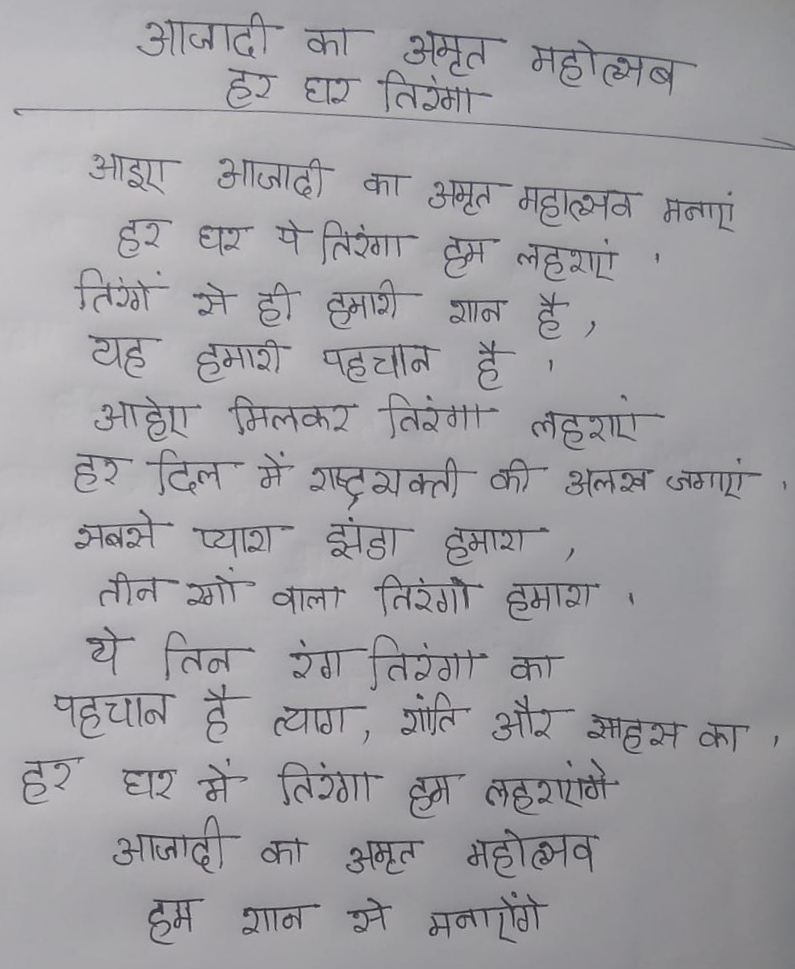 आजादी का अमृत महोत्सब
हर घर तिरंगा
आइए आजादी का अमृत महात्सव मनाएं
हर घर पे तिरंगा हम लहराएं ।
तिरंगें से ही हमारी शान है ,
यह हमारी पहचान है ।
आहेए मिलकर तिरंगा लहराएं
हर दिल में राष्ट्रभक्ती की अलख जगाएं ।
सबसे प्यारा झंडा हमारा ,
तीन रगों वाला तिरंगा हमारा ।
ये तिन रंग तिरंगा का
पहचान है त्याग, शांति और साहस का ।
हर घर में तिरंगा हम लहराएंगे
आजादी का अमृत महोत्सव
हम शान से मनाऐंगे